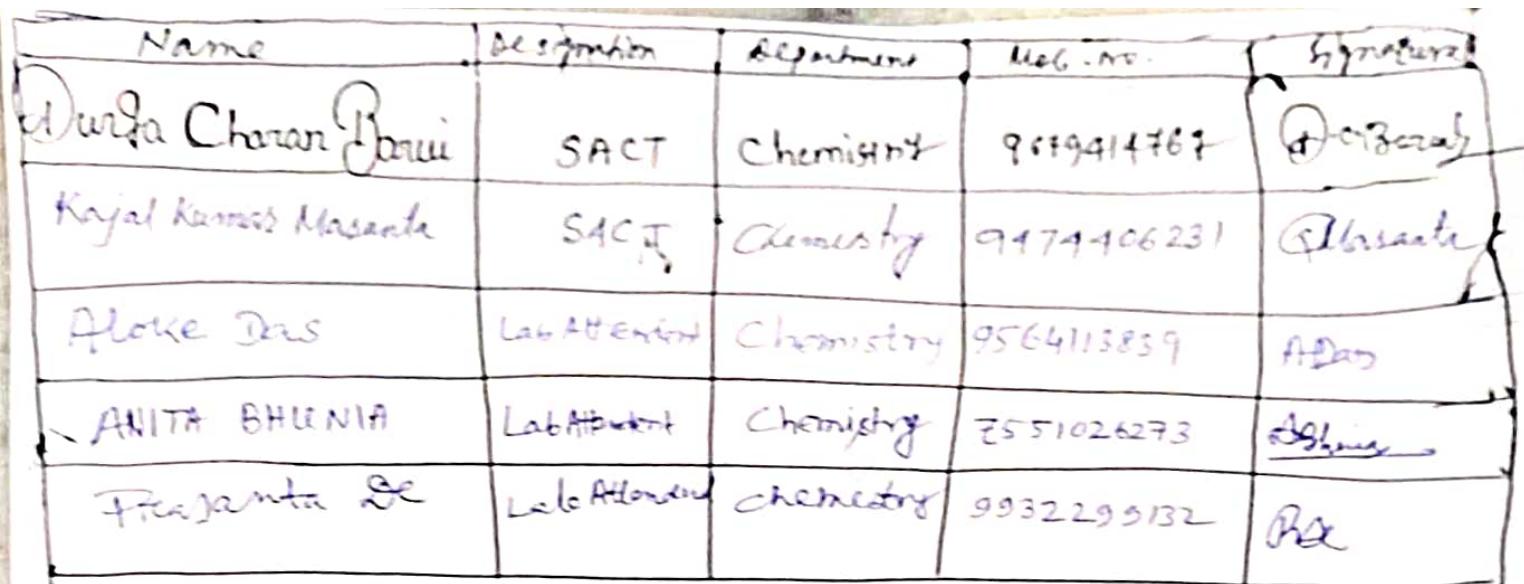 Name Designation Department Mob. no. Signature
Durga Charan Barui SACT Chemistry 9679414767
Kajal Kumar Masanta SACT Chemestry 9474406231 Masanta
Aloke Das Lab Attendent Chemistry 9564113839 ADas
ANITA BHUNIA Lab Attendent Chemistry 7551026273 ABhunia
Prasanta De Lab Attendent chemestry 9932299132 PDe